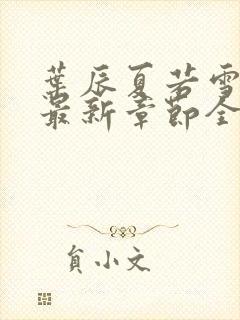 叶辰夏若雪
最新章节全
负小文